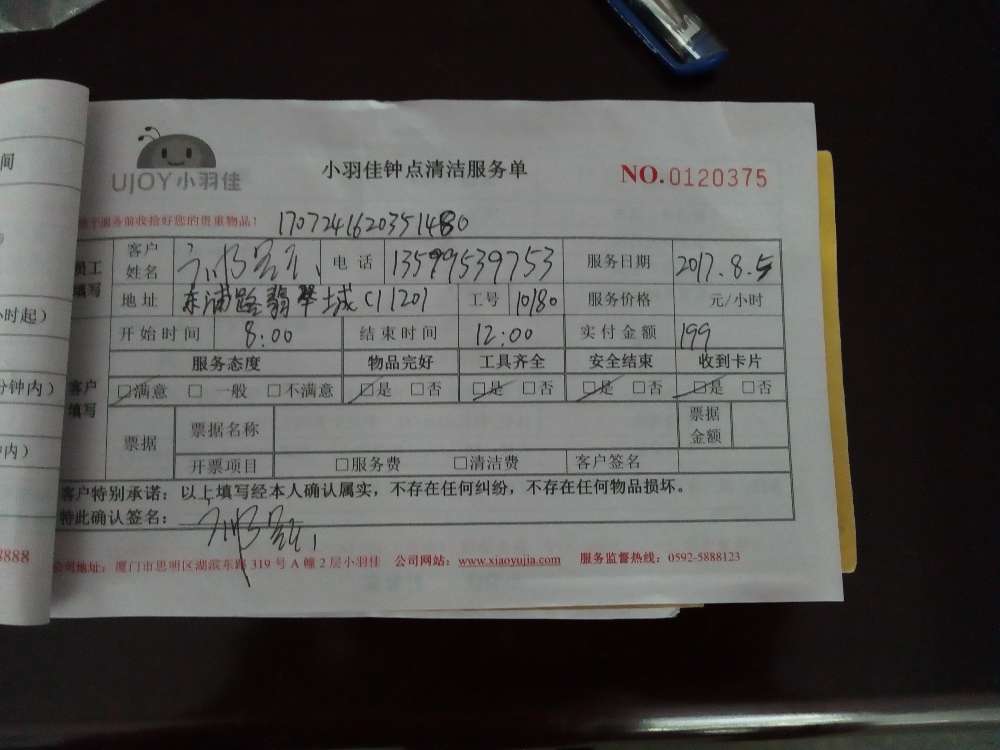 间
UJOY小羽佳
小羽佳钟点清洁服务单
NO.0120375
服务前收拾好您的贵重物品!
1707241620351480
员工填写
客户姓名 电话 13599539753 服务日期 2017.8.5
小时起)
地址 东浦路翡翠城C11201 工号 10180 服务价格 元/小时
开始时间 8:00 结束时间 12:00 实付金额 199
服务态度 物品完好 工具齐全 安全结束 收到卡片
分钟内) 客户填写
□满意 □一般 □不满意 □是 □否 □是 □否 □是 □否 □是 □否
票据 票据名称 票据金额
内)
开票项目 □服务费 □清洁费 客户签名
客户特别承诺:以上填写经本人确认属实,不存在任何纠纷,不存在任何物品损坏。
特此确认签名:
8888
公司地址:厦门市思明区湖滨东路319号A幢2层小羽佳 公司网站:www.xiaoyujia.com 服务监督热线:0592-5888123